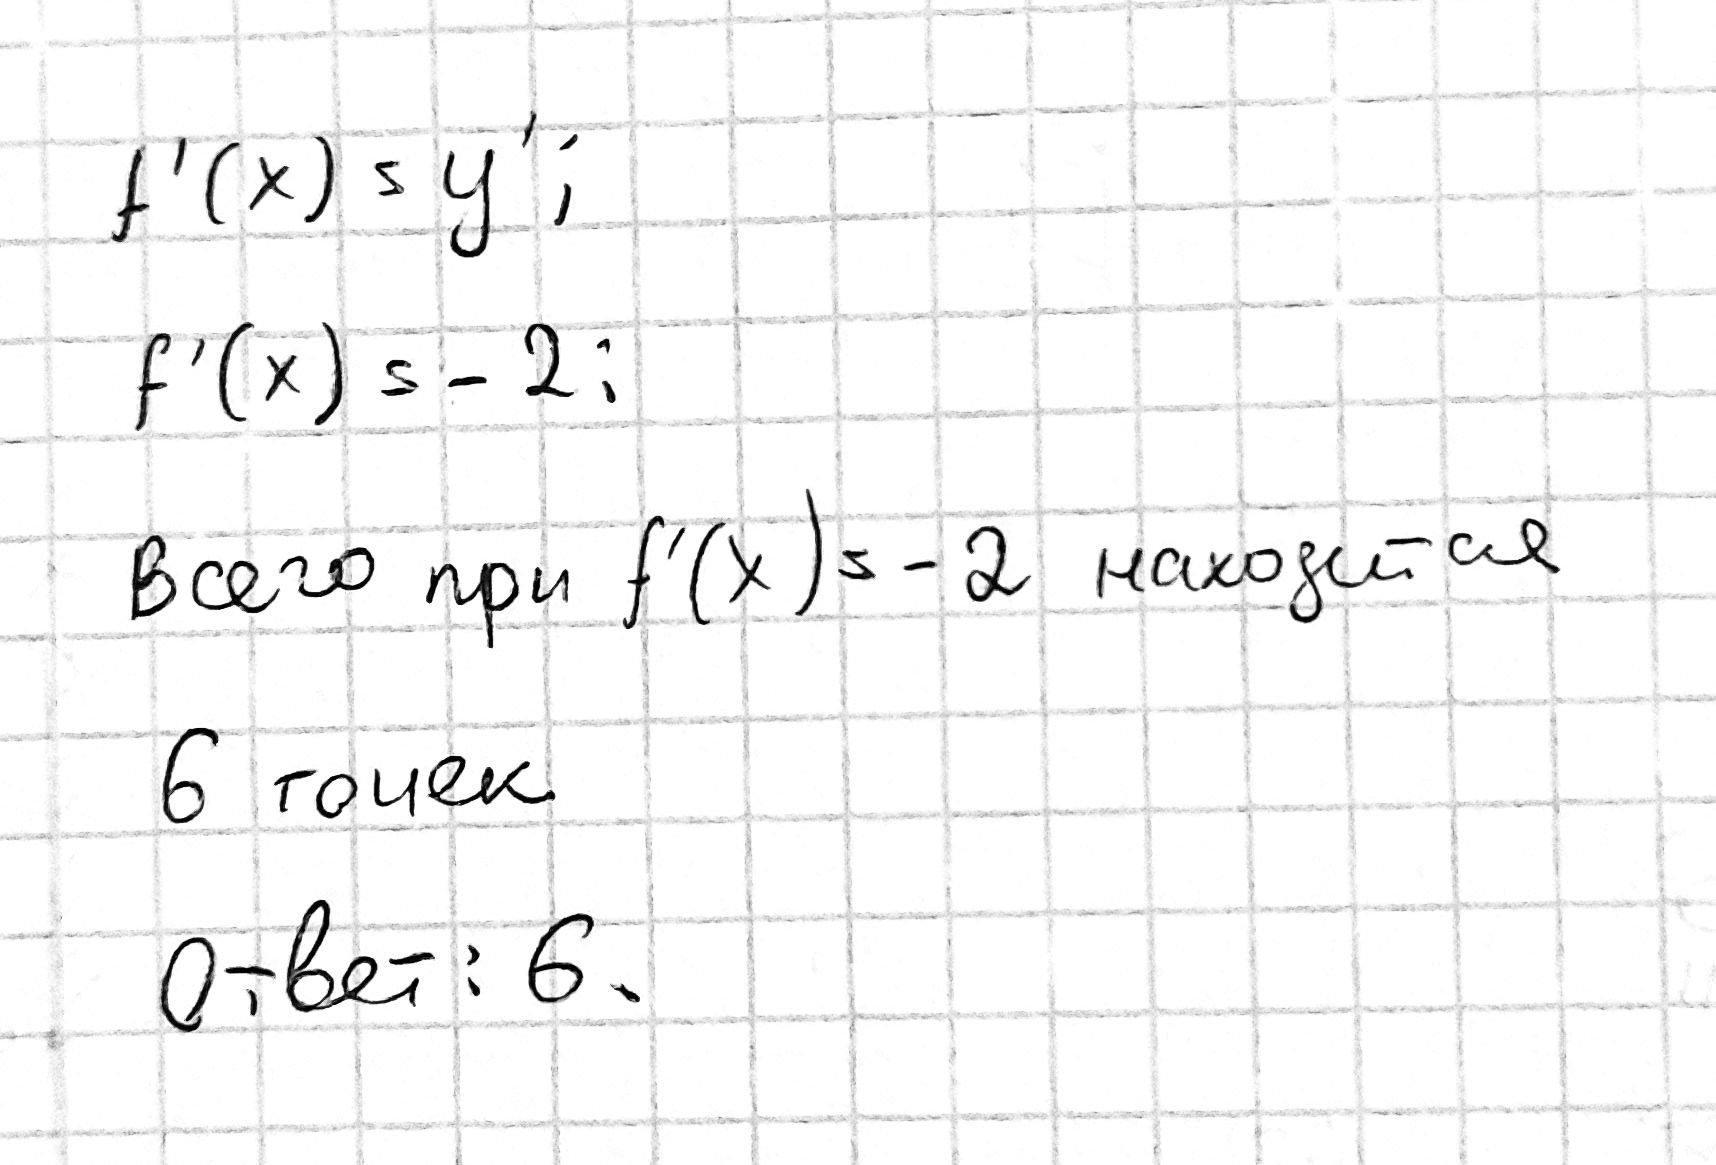 f'(x) = y';
f'(x) = -2;
Всего при f'(x) = -2 находится
6 точек
Ответ: 6.